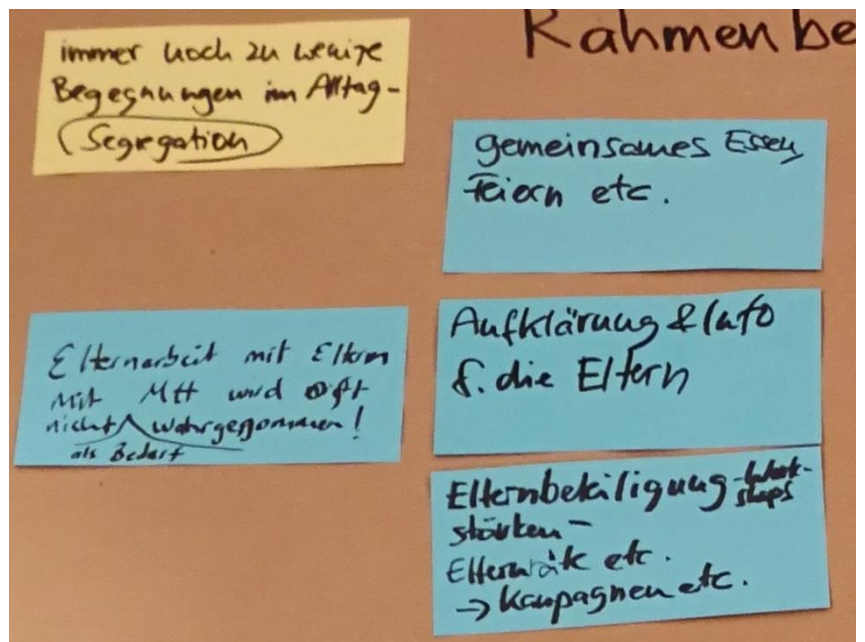 Rahmenbe
immer noch zu wenige
Begegnungen im Alltag-
Segregation
gemeinsames Essen,
Feiern etc.
Elternarbeit mit Eltern
mit MH wird oft
nicht wahrgenommen!
als Bedarf
Aufklärung & Info
f. die Eltern
Elternbeteiligung - Workshops
stärken -
Elternräte etc.
→ Kampagnen etc.